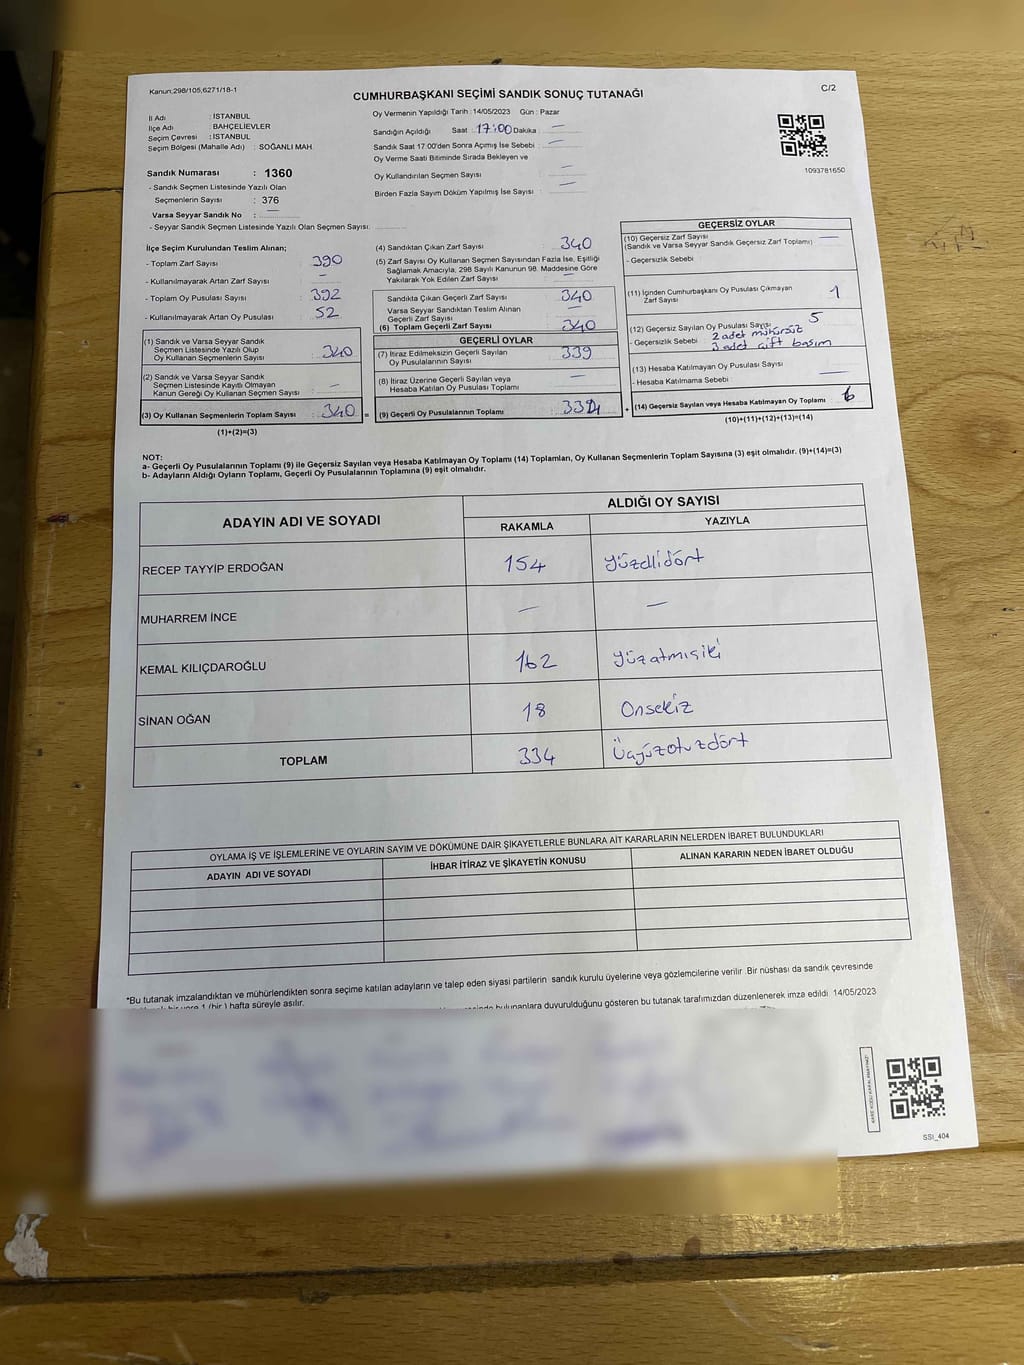 Kanun:298/105,6271/18-1
CUMHURBAŞKANI SEÇİMİ SANDIK SONUÇ TUTANAĞI
C/2
İl Adı : ISTANBUL
İlçe Adı : BAHÇELİEVLER
Seçim Çevresi : ISTANBUL
Seçim Bölgesi (Mahalle Adı) : SOĞANLI MAH.
Oy Vermenin Yapıldığı Tarih : 14/05/2023 Gün : Pazar
Sandığın Açıldığı Saat : 17:00 Dakika : —
Sandık Saat 17:00'den Sonra Açımış İse Sebebi : —
Oy Verme Saati Bitiminde Sırada Bekleyen ve
Oy Kullandırılan Seçmen Sayısı : —
Birden Fazla Sayım Döküm Yapılmış İse Sayısı : —
1093781650
Sandık Numarası : 1360
- Sandık Seçmen Listesinde Yazılı Olan
Seçmenlerin Sayısı : 376
Varsa Seyyar Sandık No : —
- Seyyar Sandık Seçmen Listesinde Yazılı Olan Seçmen Sayısı:
İlçe Seçim Kurulundan Teslim Alınan;
- Toplam Zarf Sayısı : 390
- Kullanılmayarak Artan Zarf Sayısı : —
- Toplam Oy Pusulası Sayısı : 392
- Kullanılmayarak Artan Oy Pusulası : 52
(1) Sandık ve Varsa Seyyar Sandık
Seçmen Listesinde Yazılı Olup
Oy Kullanan Seçmenlerin Sayısı : 340
(2) Sandık ve Varsa Seyyar Sandık
Seçmen Listesinde Kayıtlı Olmayan
Kanun Gereği Oy Kullanan Seçmen Sayısı : —
(3) Oy Kullanan Seçmenlerin Toplam Sayısı : 340 =
(1)+(2)=(3)
(4) Sandıktan Çıkan Zarf Sayısı : 340
(5) Zarf Sayısı Oy Kullanan Seçmen Sayısından Fazla İse, Eşitliği
Sağlamak Amacıyla, 298 Sayılı Kanunun 98. Maddesine Göre
Yakılarak Yok Edilen Zarf Sayısı : —
Sandıkta Çıkan Geçerli Zarf Sayısı : 340
Varsa Seyyar Sandıktan Teslim Alınan
Geçerli Zarf Sayısı : —
(6) Toplam Geçerli Zarf Sayısı : 340
GEÇERLİ OYLAR
(7) İtiraz Edilmeksizin Geçerli Sayılan
Oy Pusulalarının Sayısı : 339
(8) İtiraz Üzerine Geçerli Sayılan veya
Hesaba Katılan Oy Pusulası Toplamı : —
(9) Geçerli Oy Pusulalarının Toplamı : 334 +
GEÇERSİZ OYLAR
(10) Geçersiz Zarf Sayısı : —
(Sandık ve Varsa Seyyar Sandık Geçersiz Zarf Toplamı)
- Geçersizlik Sebebi
(11) İçinden Cumhurbaşkanı Oy Pusulası Çıkmayan
Zarf Sayısı : 1
(12) Geçersiz Sayılan Oy Pusulası Sayısı : 5
- Geçersizlik Sebebi : 2 adet mühürsüz
3 adet çift basım
(13) Hesaba Katılmayan Oy Pusulası Sayısı : —
- Hesaba Katılmama Sebebi
(14) Geçersiz Sayılan veya Hesaba Katılmayan Oy Toplamı : 6
(10)+(11)+(12)+(13)=(14)
NOT:
a- Geçerli Oy Pusulalarının Toplamı (9) ile Geçersiz Sayılan veya Hesaba Katılmayan Oy Toplamı (14) Toplamları, Oy Kullanan Seçmenlerin Toplam Sayısına (3) eşit olmalıdır. (9)+(14)=(3)
b- Adayların Aldığı Oyların Toplamı, Geçerli Oy Pusulalarının Toplamına (9) eşit olmalıdır.
ADAYIN ADI VE SOYADI ALDIĞI OY SAYISI
RAKAMLA YAZIYLA
RECEP TAYYİP ERDOĞAN 154 yüzellidört
MUHARREM İNCE — —
KEMAL KILIÇDAROĞLU 162 yüzatmışiki
SİNAN OĞAN 18 Onsekiz
TOPLAM 334 Üçyüzotuzdört
OYLAMA İŞ VE İŞLEMLERİNE VE OYLARIN SAYIM VE DÖKÜMÜNE DAİR ŞİKAYETLERLE BUNLARA AİT KARARLARIN NELERDEN İBARET BULUNDUKLARI
ADAYIN ADI VE SOYADI İHBAR İTİRAZ VE ŞİKAYETİN KONUSU ALINAN KARARIN NEDEN İBARET OLDUĞU
*Bu tutanak imzalandıktan ve mühürlendikten sonra seçime katılan adayların ve talep eden siyasi partilerin sandık kurulu üyelerine veya gözlemcilerine verilir .Bir nüshası da sandık çevresinde
1 (bir ) hafta süreyle asılır.
bulunanlara duyurulduğunu gösteren bu tutanak tarafımızdan düzenlenerek imza edildi 14/05/2023
SSI_404